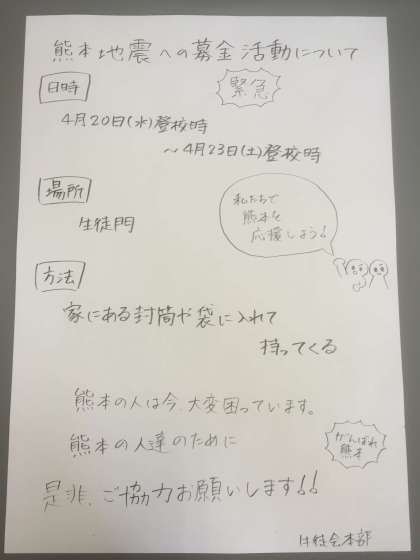 熊本地震への募金活動について
緊急
日時
4月20日(水)登校時
～4月23日(土)登校時
場所
生徒門
私たちで
熊本を
応援しよう!
方法
家にある封筒や袋に入れて
持ってくる
熊本の人は今、大変困っています。
熊本の人達のために
がんばれ
熊本
是非、ご協力お願いします!!
生徒会本部